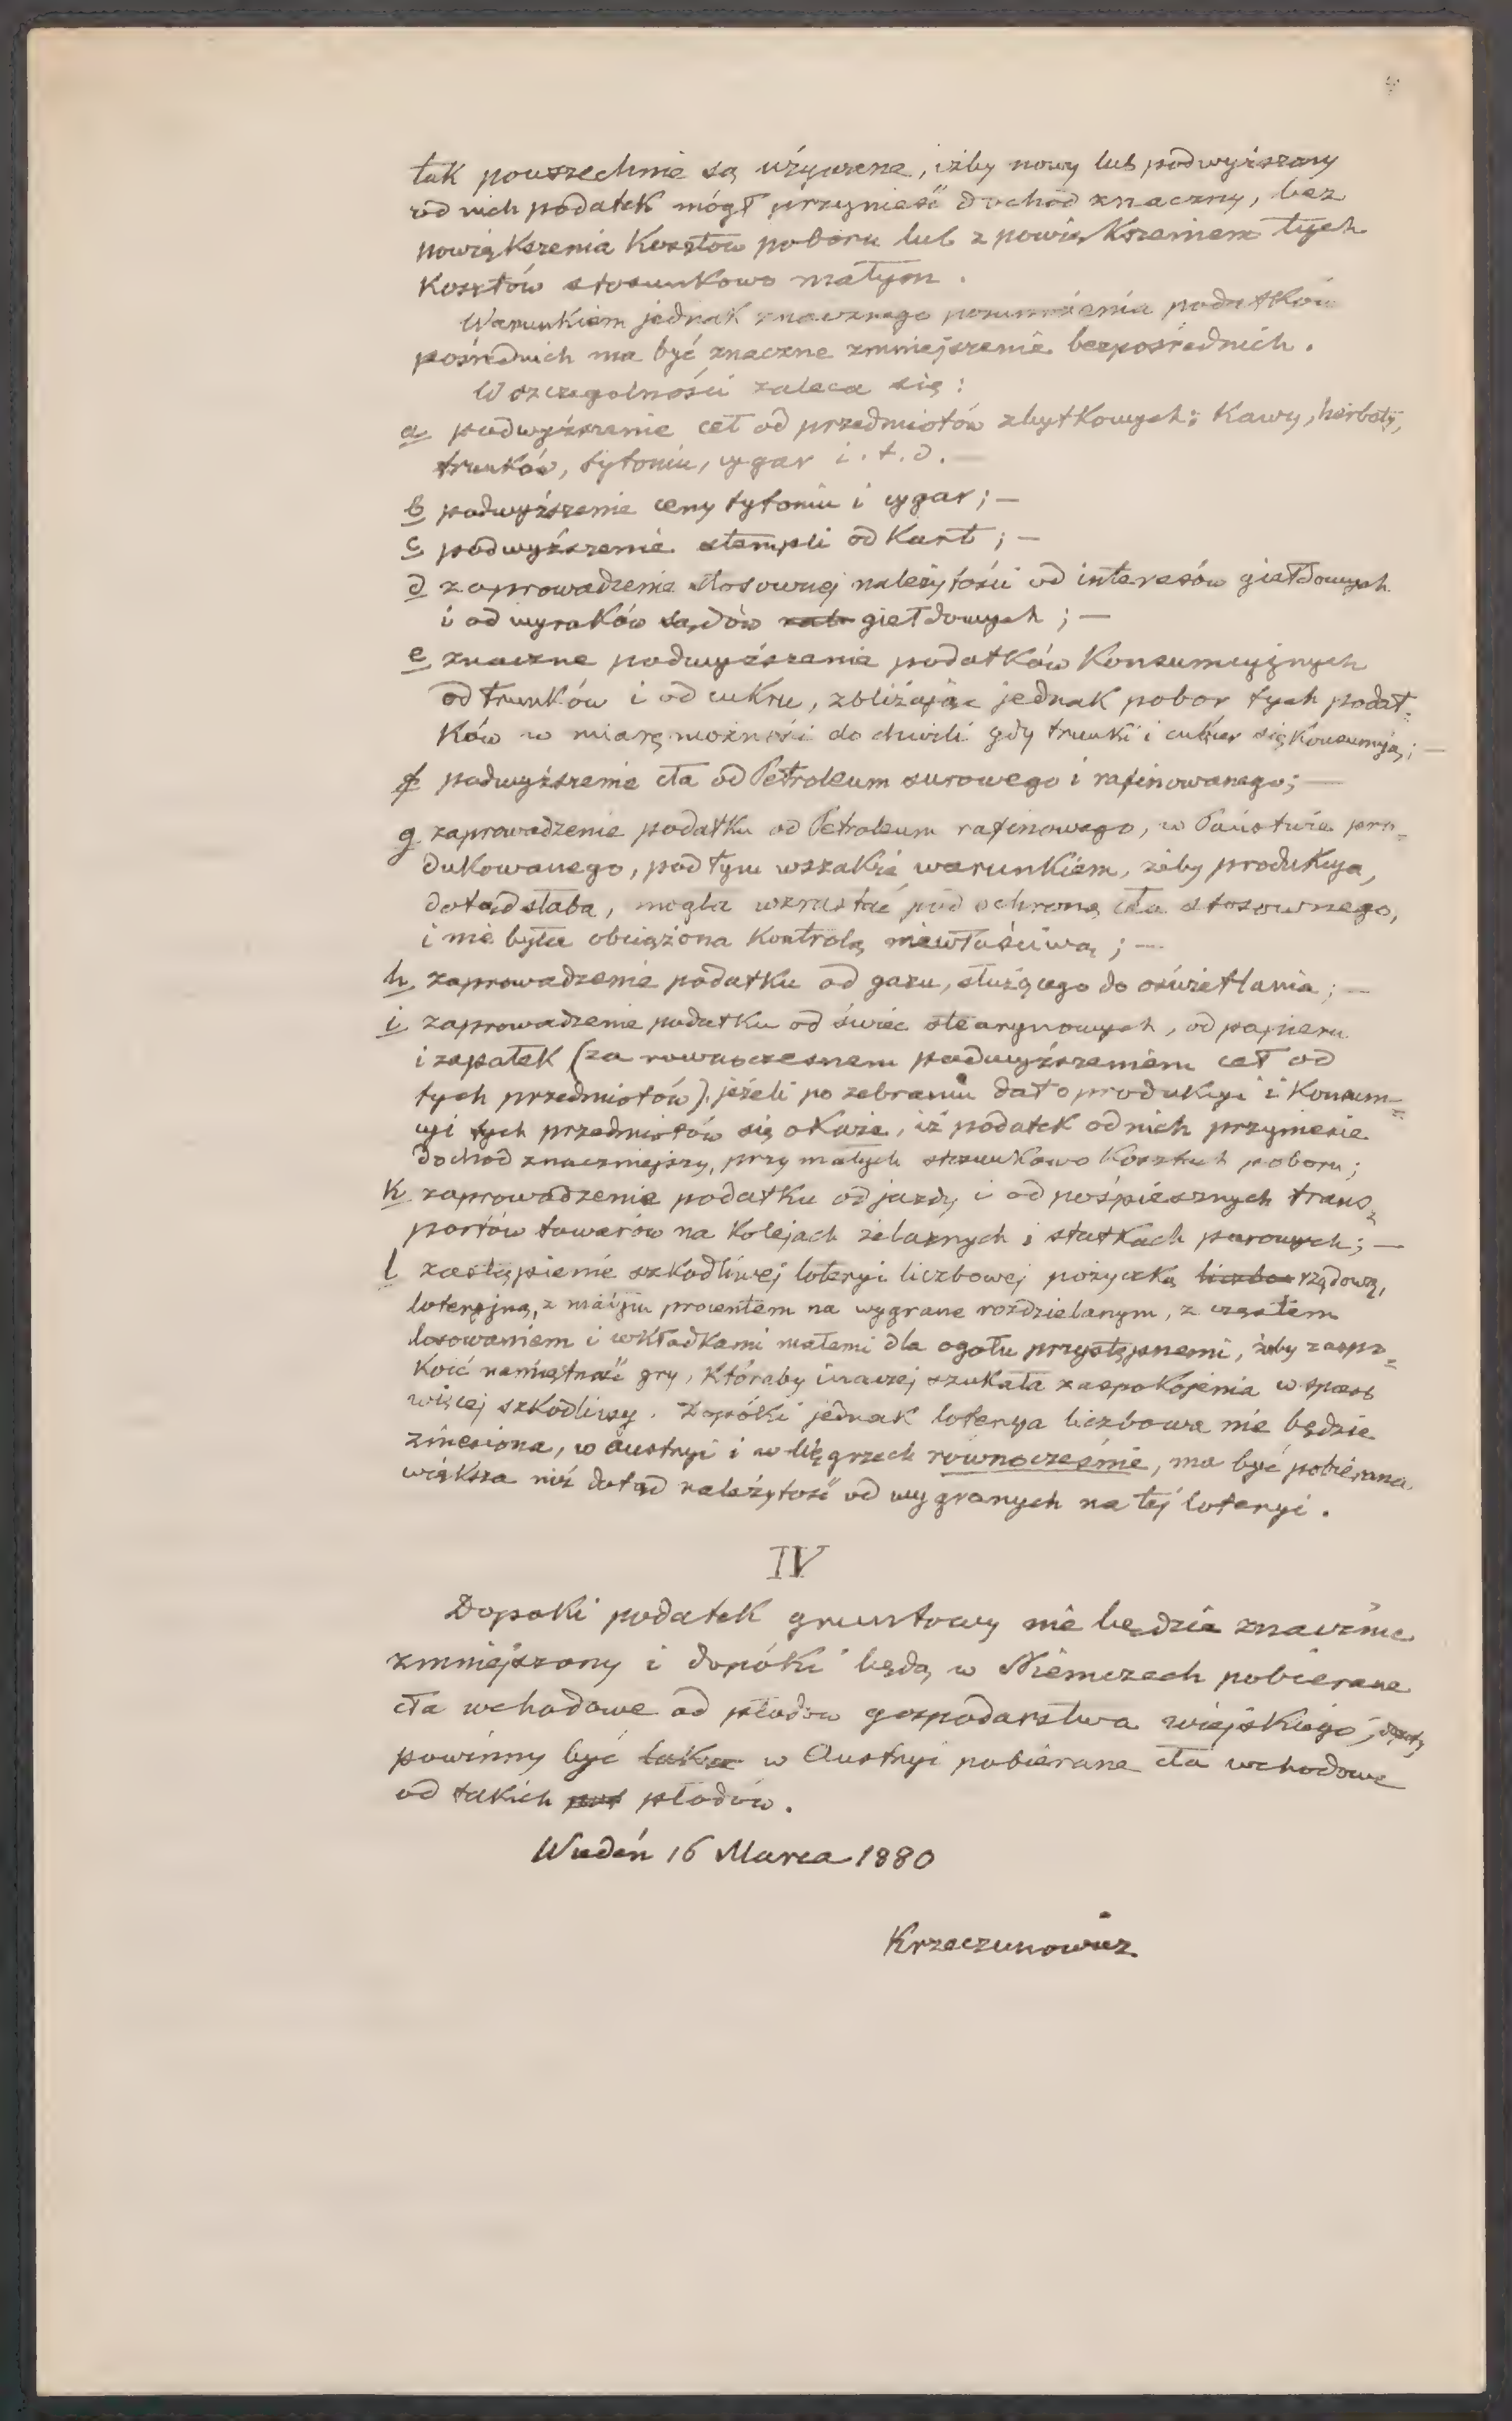 tak powszechnie są używane, iżby nowy lub podwyższony
od nich podatek mógł przynieść dochód znaczny, bez
powiększenia kosztów poboru lub z powiększeniem tych
kosztów stosunkowo małym.
Warunkiem jednak znacznego pomnożenia podatków
pośrednich ma być znaczne zmniejszenie bezpośrednich.
W szczególności zaleca się:
a podwyższenie ceł od przedmiotów zbytkowych: Kawy, herbaty,
trunków, tytoniu, cygar i.t.d. —
b podwyższenie ceny tytoniu i cygar; —
c podwyższenie stempli od kart; —
d zaprowadzenie stosownej należytości od interesów giełdowych
i od wyroków sądów giełdowych; —
e znaczne podwyższenie podatków konsumcyjnych
od trunków i od cukru, zbliżając jednak pobór tych podat=
ków w miarę możności do chwili gdy trunki i cukier się konsumują; —
f podwyższenie cła od Petroleum surowego i rafinowanego; —
g zaprowadzenie podatku od Petroleum rafinowego, w Państwie pro=
dukowanego, pod tym wszakże warunkiem, żeby produkcja,
dotąd słaba, mogła wzrastać pod ochroną cła stosownego,
i nie była obciążona kontrolą niewłaściwą; —
h zaprowadzenie podatku od gazu, służącego do oświetlania; —
i zaprowadzenie podatku od świec stearynowych, od papieru
i zapałek (za rownoczesnem podwyższeniem ceł od
tych przedmiotów) jeżeli po zebraniu dat o produkcyi i konsum=
cyi tych przedmiotów się okaże, iż podatek od nich przyniesie
dochód znaczniejszy, przy małych stosunkowo kosztach poboru;
k zaprowadzenie podatku od jazdy i od pośpiesznych trans=
portów towarów na kolejach żelaznych i statkach parowych; —
l zastąpienie szkodliwej loteryi liczbowej pożyczką rządową,
loteryjną, z małym procentem na wygrane rozdzielanym, z częstem
losowaniem i wkładkami małemi dla ogółu przystępnemi, żeby zaspo=
koić namiętność gry, któraby inaczej szukała zaspokojenia w sposób
więcej szkodliwy. Dopóki jednak loterya liczbowa nie będzie
zniesiona, w Austryi i w Węgrzech rownocześnie, ma być pobierana
większa niż dotąd należytość od wygranych na tej loteryi.
IV
Dopoki podatek gruntowy nie będzie znacznie
zmniejszony i dopóki będą w Niemczech pobierane
cła wchodowe od płodów gospodarstwa wiejskiego,
powinny być w Austryi pobierane cła wchodowe
od takich płodów.
Wiedeń 16 Marca 1880
Krzeczunowicz